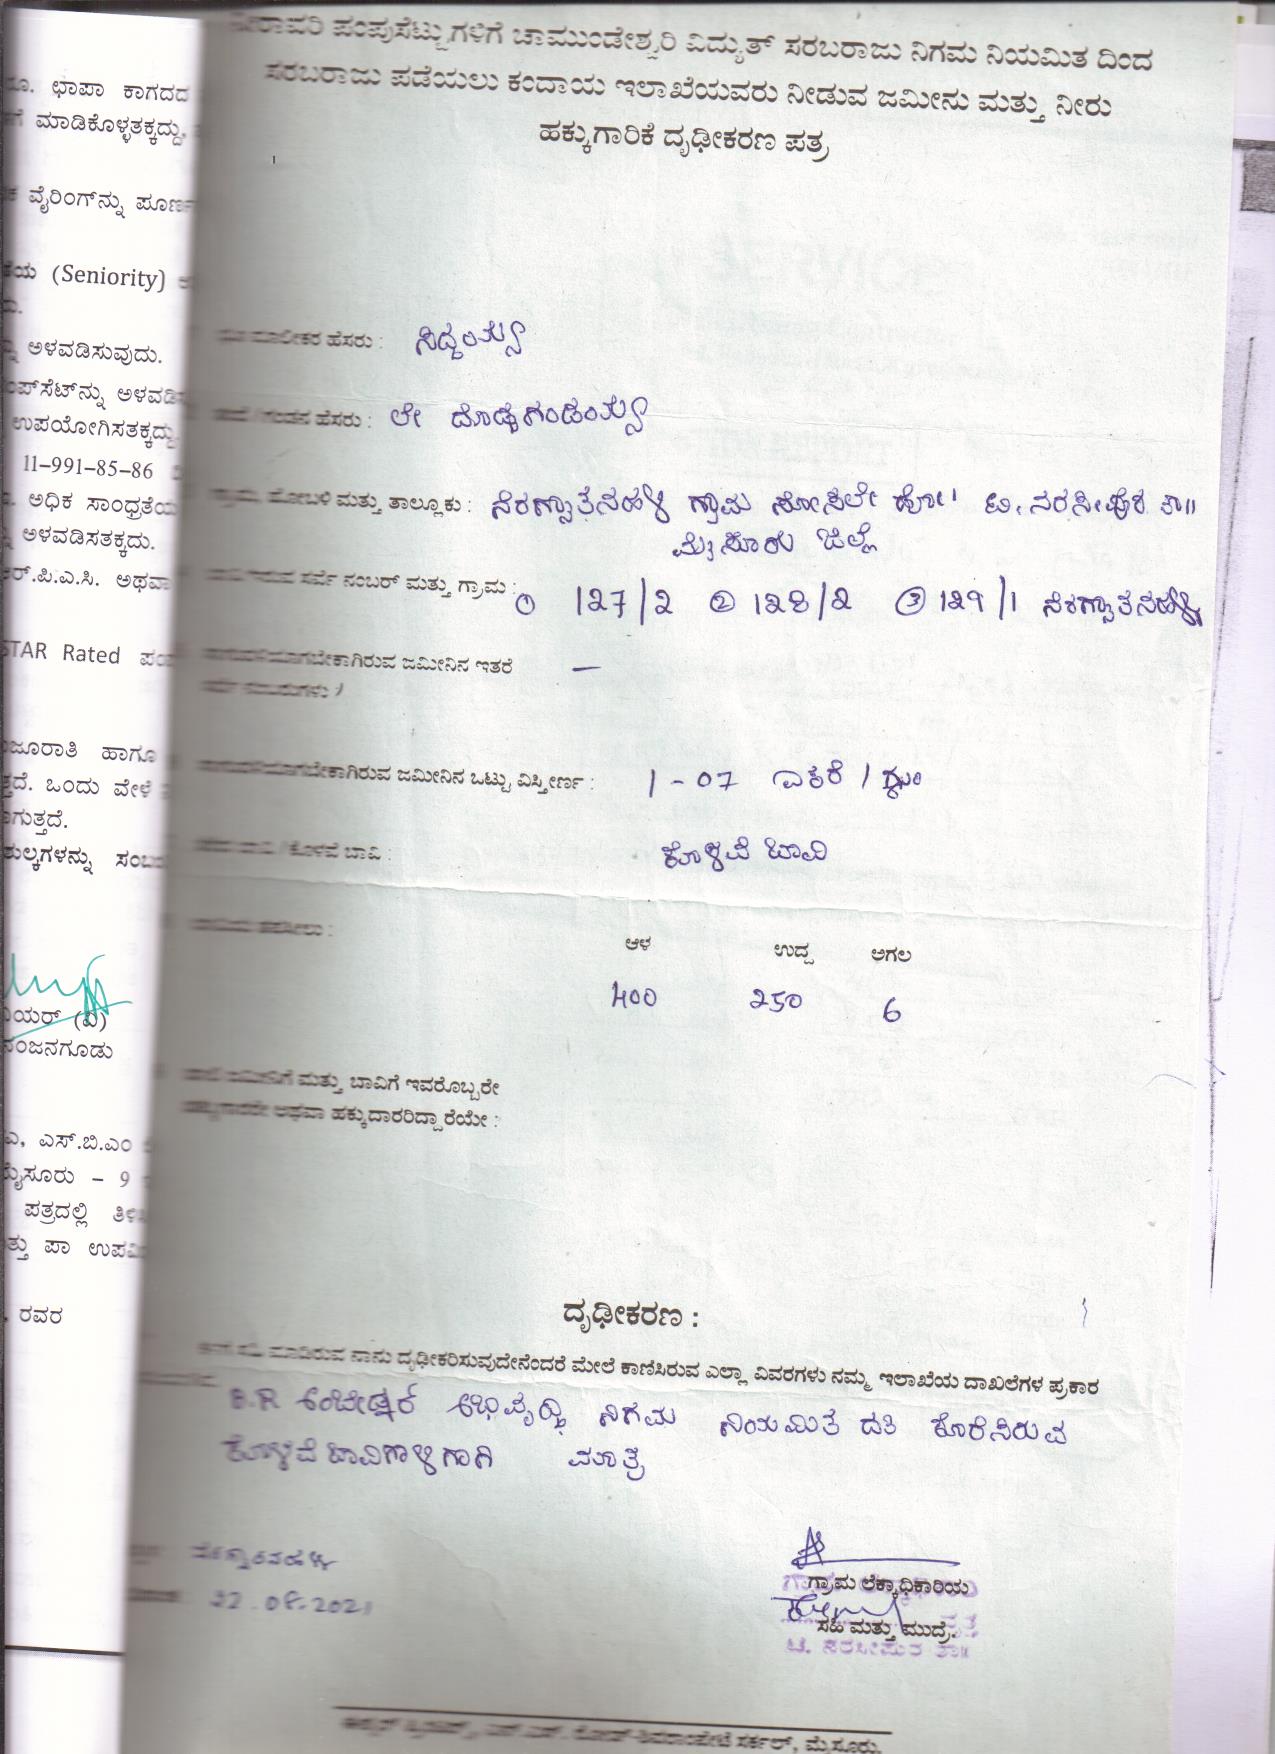 ನೀರಾವರಿ ಪಂಪುಸೆಟ್ಟುಗಳಿಗೆ ಚಾಮುಂಡೇಶ್ವರಿ ವಿದ್ಯುತ್ ಸರಬರಾಜು ನಿಗಮ ನಿಯಮಿತ ದಿಂದ
ಸರಬರಾಜು ಪಡೆಯಲು ಕಂದಾಯ ಇಲಾಖೆಯವರು ನೀಡುವ ಜಮೀನು ಮತ್ತು ನೀರು
ಹಕ್ಕುಗಾರಿಕೆ ದೃಢೀಕರಣ ಪತ್ರ
ಹೆಸರು : ಸಿದ್ದಯ್ಯ
ಹೆಸರು : ಲೇ ದೊಡ್ಡಗಂಡಯ್ಯ
ಗ್ರಾಮ, ಹೋಬಳಿ ಮತ್ತು ತಾಲ್ಲೂಕು : ನೆರಗ್ಯಾತನಹಳ್ಳಿ ಗ್ರಾಮ ಸೋಸಲೇ ಹೋ। ಟಿ. ನರಸೀಪುರ ತಾ॥
ಮೈಸೂರು ಜಿಲ್ಲೆ
ಇರುವ ಸರ್ವೆ ನಂಬರ್ ಮತ್ತು ಗ್ರಾಮ : ① 127/2 ② 128/2 ③ 129/1 ನೆರಗ್ಯಾತನಹಳ್ಳಿ
ಜಮೀನಿನ ಇತರೆ —
ಸರ್ವೆ ನಂಬರುಗಳು :
ಜಮೀನಿನ ಒಟ್ಟು ವಿಸ್ತೀರ್ಣ : 1-07 ಎಕರೆ / ಗುಂ
ಕೊಳವೆ ಬಾವಿ : ಕೊಳವೆ ಬಾವಿ
ಬಾವಿಯ ತಪಸೀಲು :
ಆಳ ಉದ್ದ ಅಗಲ
400 250 6
ಜಮೀನಿಗೆ ಮತ್ತು ಬಾವಿಗೆ ಇವರೊಬ್ಬರೇ
ಹಕ್ಕುದಾರರೇ ಅಥವಾ ಹಕ್ಕುದಾರರಿದ್ದಾರೆಯೇ :
ದೃಢೀಕರಣ :
ಸಹಿ ಮಾಡಿರುವ ನಾನು ದೃಢೀಕರಿಸುವುದೇನೆಂದರೆ ಮೇಲೆ ಕಾಣಿಸಿರುವ ಎಲ್ಲಾ ವಿವರಗಳು ನಮ್ಮ ಇಲಾಖೆಯ ದಾಖಲೆಗಳ ಪ್ರಕಾರ
B.R ಅಂಬೇಡ್ಕರ್ ಅಭಿವೃದ್ಧಿ ನಿಗಮ ನಿಯಮಿತ ವತಿ ಕೊರೆಸಿರುವ
ಕೊಳವೆ ಬಾವಿಗಾಳಿಗಾಗಿ ಮಾತ್ರ
ನೆರಗ್ಯಾತನಹಳ್ಳಿ
22.08.2021
ಗ್ರಾಮ ಲೆಕ್ಕಾಧಿಕಾರಿಯ
ಸಹಿ ಮತ್ತು ಮುದ್ರೆ.
ಟಿ. ನರಸೀಪುರ ತಾ॥
ಸರ್ಕಲ್, ಮೈಸೂರು.
ರೂ. ಛಾಪಾ ಕಾಗದದ
ಮಾಡಿಕೊಳ್ಳತಕ್ಕದ್ದು,
ವೈರಿಂಗ್‌ನ್ನು ಪೂರ್ಣ
(Seniority)
ಅಳವಡಿಸುವುದು.
ಅಳವಡಿಸ
ಉಪಯೋಗಿಸತಕ್ಕದ್ದು
11-991-85-86
ಅಧಿಕ ಸಾಂದ್ರತೆಯ
ಅಳವಡಿಸತಕ್ಕದು.
ಆರ್.ಪಿ.ಎ.ಸಿ. ಅಥವಾ
STAR Rated
ಮಂಜೂರಾತಿ ಹಾಗೂ
ಒಂದು ವೇಳೆ
ಶುಲ್ಕಗಳನ್ನು
ನಂಜನಗೂಡು
ಎಸ್.ಬಿ.ಎಂ
ಮೈಸೂರು – 9
ಪತ್ರದಲ್ಲಿ
ರವರ